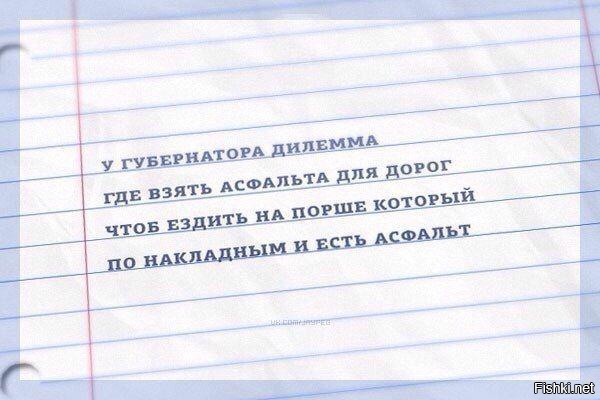 У ГУБЕРНАТОРА ДИЛЕММА
ГДЕ ВЗЯТЬ АСФАЛЬТА ДЛЯ ДОРОГ
ЧТОБ ЕЗДИТЬ НА ПОРШЕ КОТОРЫЙ
ПО НАКЛАДНЫМ И ЕСТЬ АСФАЛЬТ
VK.COM/JAYPEG
Fishki.net